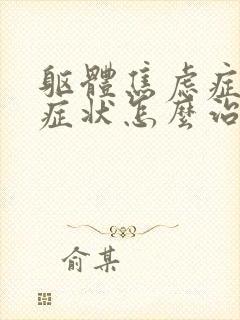 躯體焦虑症
症状怎麼治
俞某